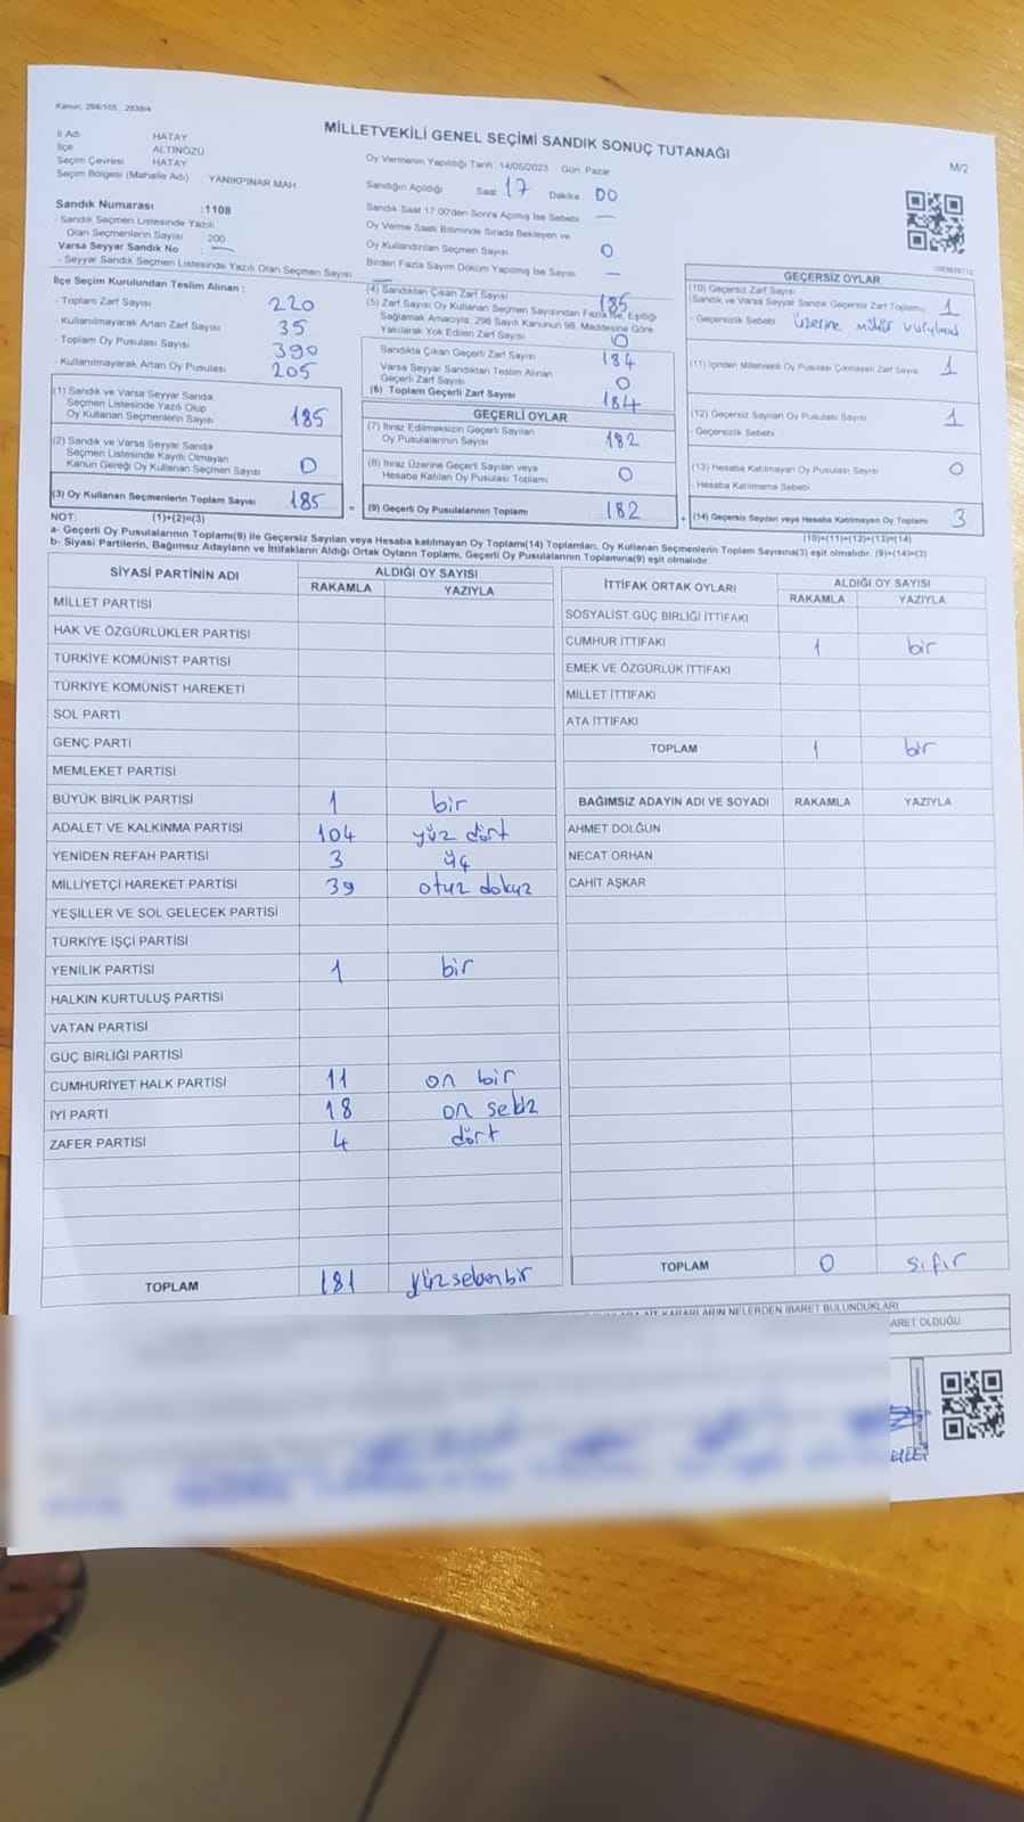 Kanun: 298/105, 2839/4
MİLLETVEKİLİ GENEL SEÇİMİ SANDIK SONUÇ TUTANAĞI
M/2
İl Adı HATAY
İlçe ALTINÖZÜ
Seçim Çevresi HATAY
Seçim Bölgesi (Mahalle Adı) : YANIKPINAR MAH.
Sandık Numarası :1108
- Sandık Seçmen Listesinde Yazılı
Olan Seçmenlerin Sayısı : 200
Varsa Seyyar Sandık No : —
- Seyyar Sandık Seçmen Listesinde Yazılı Olan Seçmen Sayısı
Oy Vermenin Yapıldığı Tarih : 14/05/2023 Gün: Pazar
Sandığın Açıldığı Saat 17 Dakika 00
Sandık Saat 17.00'den Sonra Açılmış İse Sebebi —
Oy Verme Saati Bitiminde Sırada Bekleyen ve
Oy Kullandırılan Seçmen Sayısı 0
Birden Fazla Sayım Döküm Yapılmış İse Sayısı —
İlçe Seçim Kurulundan Teslim Alınan :
- Toplam Zarf Sayısı 220
- Kullanılmayarak Artan Zarf Sayısı 35
- Toplam Oy Pusulası Sayısı 390
- Kullanılmayarak Artan Oy Pusulası 205
(1) Sandık ve Varsa Seyyar Sandık
Seçmen Listesinde Yazılı Olup
Oy Kullanan Seçmenlerin Sayısı 185
(2) Sandık ve Varsa Seyyar Sandık
Seçmen Listesinde Kayıtlı Olmayan
Kanun Gereği Oy Kullanan Seçmen Sayısı 0
(3) Oy Kullanan Seçmenlerin Toplam Sayısı 185
(4) Sandıktan Çıkan Zarf Sayısı 185
(5) Zarf Sayısı Oy Kullanan Seçmen Sayısından Fazla İse, Eşitliği
Sağlamak Amacıyla, 298 Sayılı Kanunun 98. Maddesine Göre
Yakılarak Yok Edilen Zarf Sayısı 0
Sandıkta Çıkan Geçerli Zarf Sayısı 184
Varsa Seyyar Sandıktan Teslim Alınan
Geçerli Zarf Sayısı 0
(6) Toplam Geçerli Zarf Sayısı 184
GEÇERLİ OYLAR
(7) İtiraz Edilmeksizin Geçerli Sayılan
Oy Pusulalarının Sayısı 182
(8) İtiraz Üzerine Geçerli Sayılan veya
Hesaba Katılan Oy Pusulası Toplamı 0
= (9) Geçerli Oy Pusulalarının Toplamı 182
GEÇERSİZ OYLAR
(10) Geçersiz Zarf Sayısı
(Sandık ve Varsa Seyyar Sandık Geçersiz Zarf Toplamı) 1
- Geçersizlik Sebebi Üzerine mühür vurulmuş
(11) İçinden Milletvekili Oy Pusulası Çıkmayan Zarf Sayısı 1
(12) Geçersiz Sayılan Oy Pusulası Sayısı 1
- Geçersizlik Sebebi
(13) Hesaba Katılmayan Oy Pusulası Sayısı 0
- Hesaba Katılmama Sebebi
+ (14) Geçersiz Sayılan veya Hesaba Katılmayan Oy Toplamı 3
NOT: (1)+(2)=(3)
(10)+(11)+(12)+(13)=(14)
a- Geçerli Oy Pusulalarının Toplamı(9) ile Geçersiz Sayılan veya Hesaba katılmayan Oy Toplamı(14) Toplamları, Oy Kullanan Seçmenlerin Toplam Sayısına(3) eşit olmalıdır. (9)+(14)=(3)
b- Siyasi Partilerin, Bağımsız Adayların ve İttifakların Aldığı Ortak Oyların Toplamı, Geçerli Oy Pusulalarının Toplamına(9) eşit olmalıdır.
SİYASİ PARTİNİN ADI ALDIĞI OY SAYISI
RAKAMLA YAZIYLA
MİLLET PARTİSİ
HAK VE ÖZGÜRLÜKLER PARTİSİ
TÜRKİYE KOMÜNİST PARTİSİ
TÜRKİYE KOMÜNİST HAREKETİ
SOL PARTİ
GENÇ PARTİ
MEMLEKET PARTİSİ
BÜYÜK BİRLİK PARTİSİ 1 bir
ADALET VE KALKINMA PARTİSİ 104 yüz dört
YENİDEN REFAH PARTİSİ 3 üç
MİLLİYETÇİ HAREKET PARTİSİ 39 otuz dokuz
YEŞİLLER VE SOL GELECEK PARTİSİ
TÜRKİYE İŞÇİ PARTİSİ
YENİLİK PARTİSİ 1 bir
HALKIN KURTULUŞ PARTİSİ
VATAN PARTİSİ
GÜÇ BİRLİĞİ PARTİSİ
CUMHURİYET HALK PARTİSİ 11 on bir
İYİ PARTİ 18 on sekiz
ZAFER PARTİSİ 4 dört
TOPLAM 181 yüzseksenbir
İTTİFAK ORTAK OYLARI ALDIĞI OY SAYISI
RAKAMLA YAZIYLA
SOSYALİST GÜÇ BİRLİĞİ İTTİFAKI
CUMHUR İTTİFAKI 1 bir
EMEK VE ÖZGÜRLÜK İTTİFAKI
MİLLET İTTİFAKI
ATA İTTİFAKI
TOPLAM 1 bir
BAĞIMSIZ ADAYIN ADI VE SOYADI RAKAMLA YAZIYLA
AHMET DOLĞUN
NECAT ORHAN
CAHİT AŞKAR
TOPLAM 0 sıfır
KARARLARIN NELERDEN İBARET BULUNDUKLARI
ARET OLDUĞU